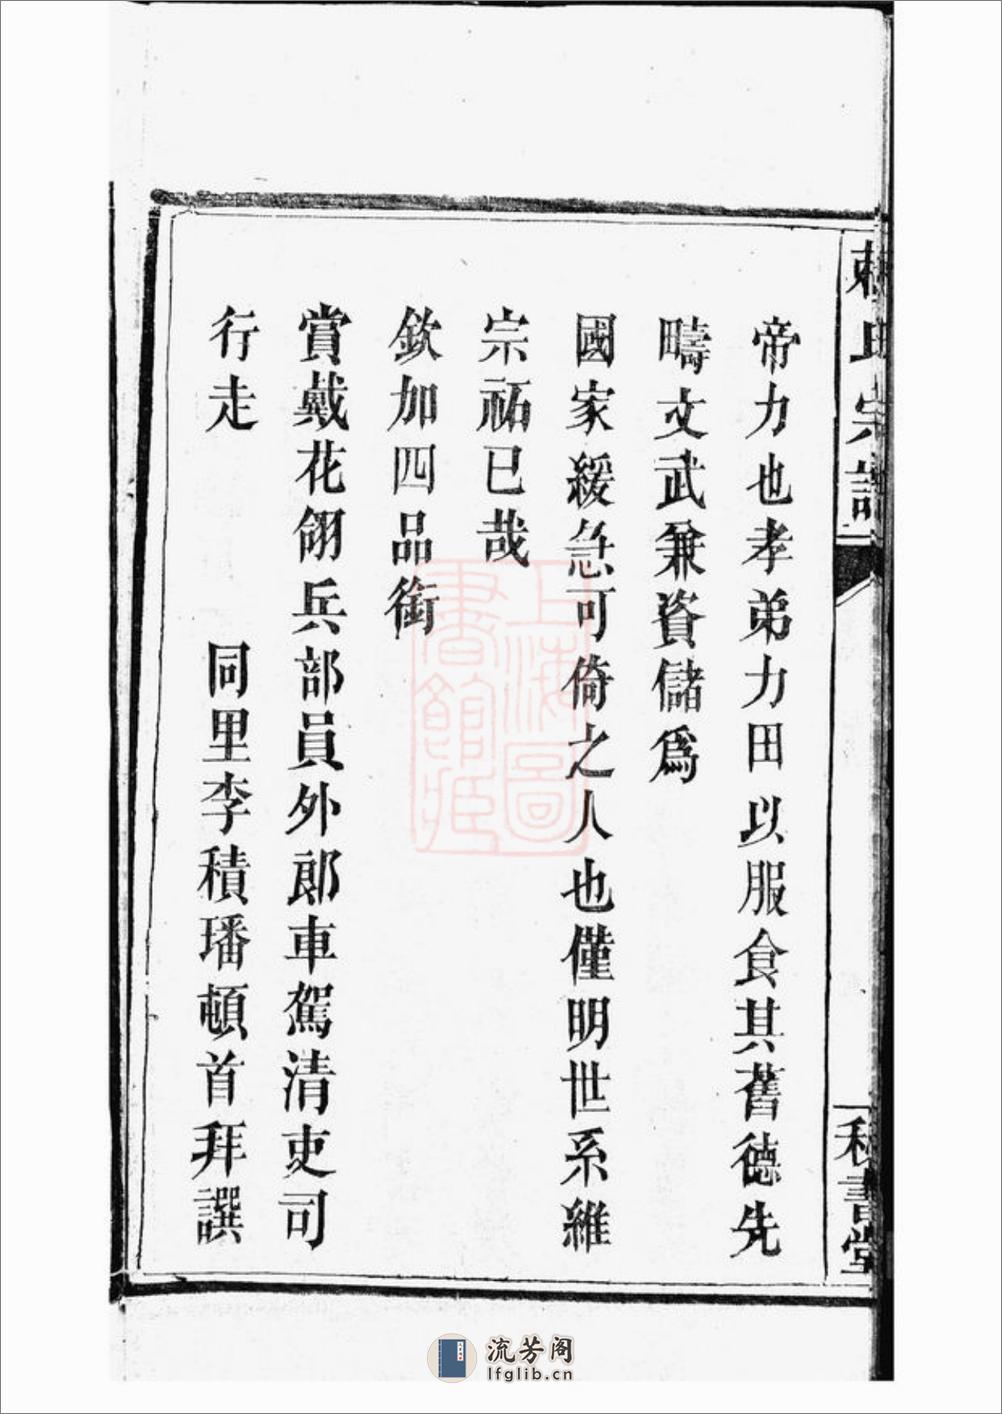 賴氏宗譜
秘書堂
帝力也孝弟力田以服食其舊德先
疇文武兼資儲爲
國家緩急可倚之人也僅明世系維
宗祏已哉
欽加四品銜
賞戴花翎兵部員外郎車駕清吏司
行走 同里李積璠頓首拜譔
上海圖
書館藏
流芳阁
lfglib.cn